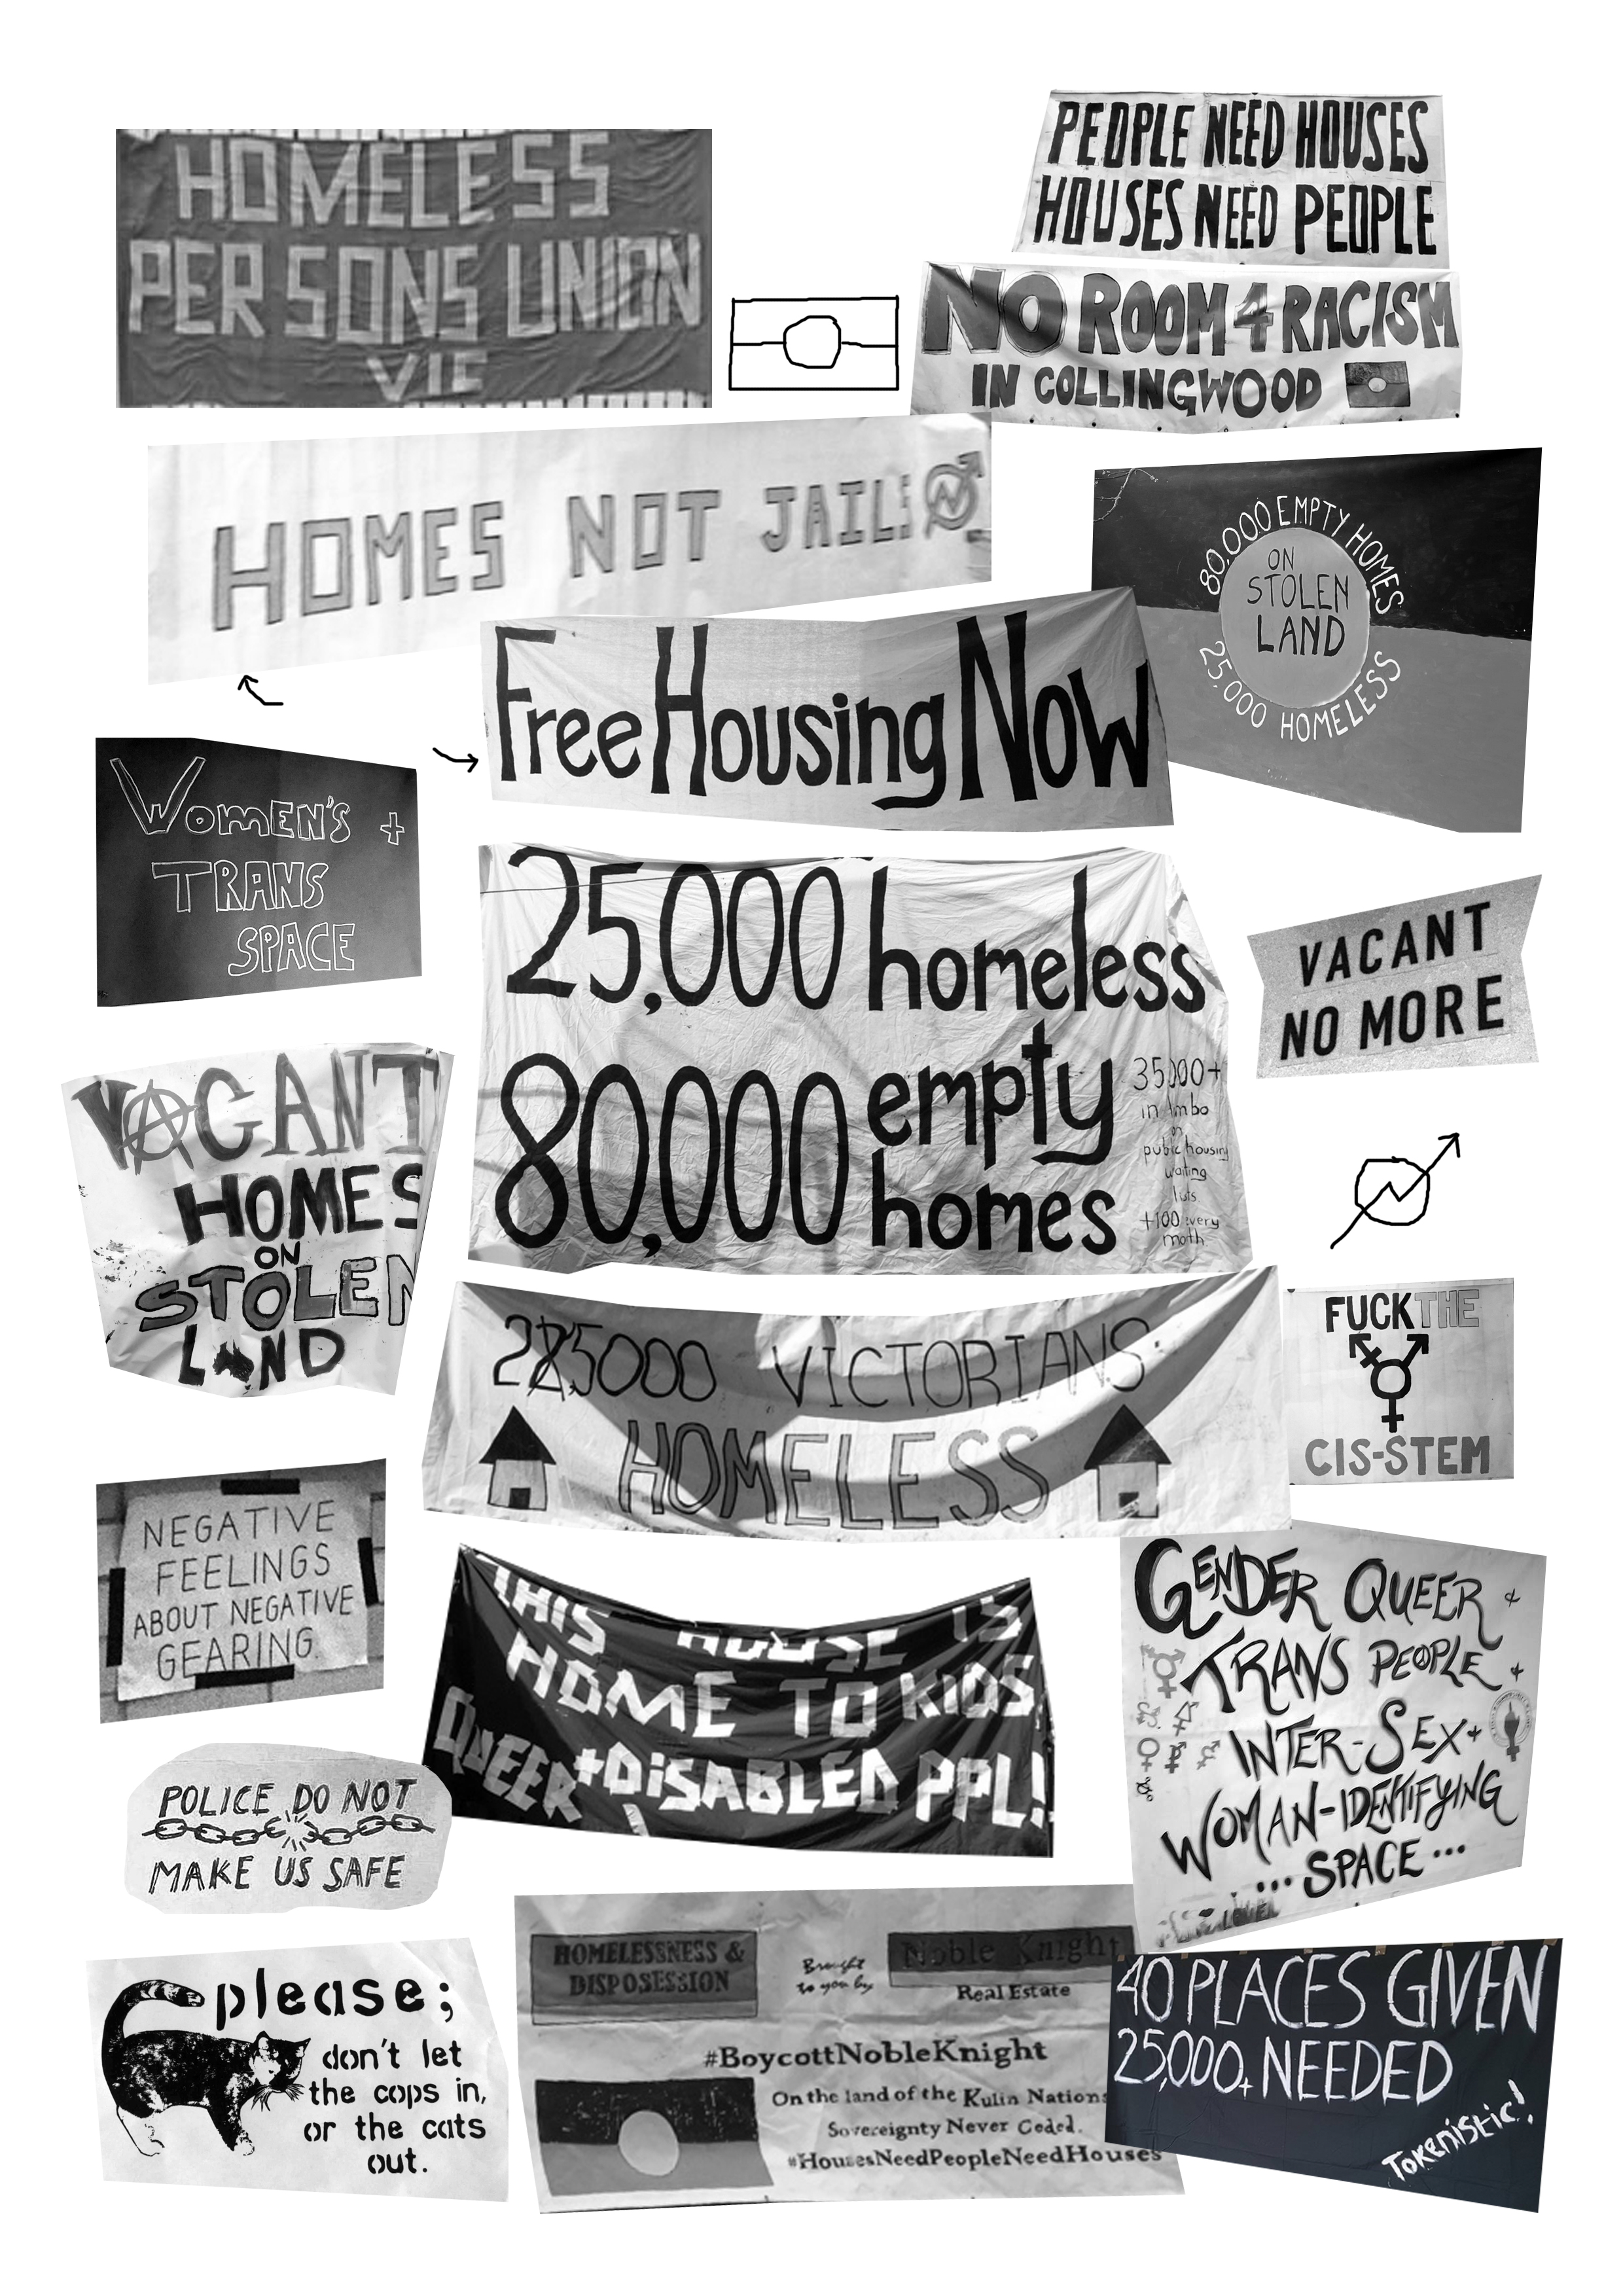 HOMELESS
PERSONS UNION
VIC
PEOPLE NEED HOUSES
HOUSES NEED PEOPLE
NO ROOM 4 RACISM
IN COLLINGWOOD
HOMES NOT JAILS
80,000 EMPTY HOMES
ON
STOLEN
LAND
25,000 HOMELESS
Free Housing Now
WOMEN'S +
TRANS
SPACE
25,000 homeless
80,000 empty
homes
35000+
in limbo
on
public housing
waiting
lists
+100 every
month
VACANT
NO MORE
VACANT
HOMES
ON
STOLEN
LAND
225000 VICTORIANS
HOMELESS
FUCK THE
CIS-STEM
NEGATIVE
FEELINGS
ABOUT NEGATIVE
GEARING.
THIS HOUSE IS
HOME TO KIDS,
QUEER + DISABLED PPL!
GENDER QUEER +
TRANS PEOPLE +
INTER-SEX +
WOMAN-IDENTIFYING
...SPACE...
POLICE DO NOT
MAKE US SAFE
please;
don't let
the cops in,
or the cats
out.
HOMELESSNESS &
DISPOSESSION
Brought
to you by
Noble Knight
Real Estate
#BoycottNobleKnight
On the land of the Kulin Nations
Sovereignty Never Ceded.
#HousesNeedPeopleNeedHouses
40 PLACES GIVEN
25,000+ NEEDED
Tokenistic!